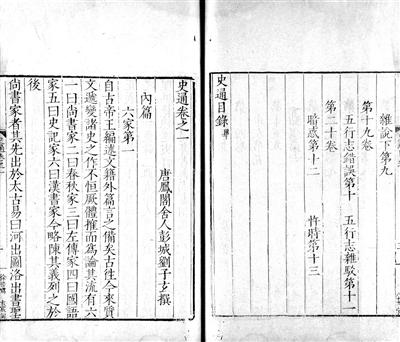 雜說下第九
第十九卷
五行志錯誤第十　五行志雜駁第十一
第二十卷
暗惑第十二　忤時第十三
史通目錄畢
史通卷之一
唐鳳閣舍人彭城劉子玄撰
內篇
六家第一
自古帝王編述文籍外篇言之備矣古往今來質
文遞變諸史之作不恒厥體摧而為論其流有六
一曰尚書家二曰春秋家三曰左傳家四曰國語
家五曰史記家六曰漢書家今略陳其義列之於
後
尚書家者其先出於太古易曰河出圖洛出書聖